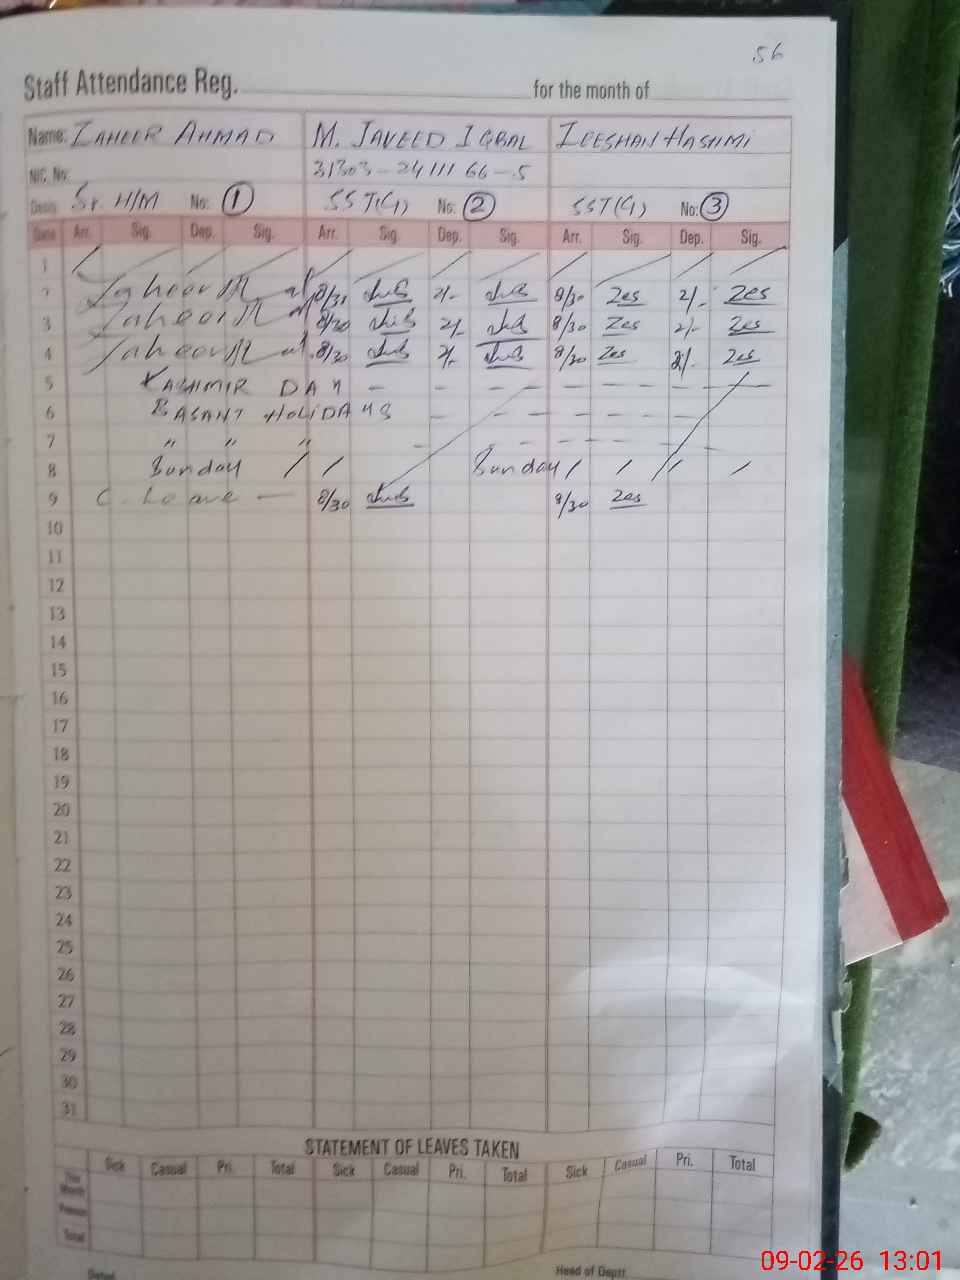 56
Staff Attendance Reg. for the month of
Name: ZAHEER AHMAD M. JAVEED IQBAL ZEESHAN HASHMI
NIC. No: 31303-2411166-5
Desig: Sr H/M No: 1 SST(G) No: 2 SST(G) No: 3
Date Arr. Sig. Dep. Sig. Arr. Sig. Dep. Sig. Arr. Sig. Dep. Sig.
1
2 8/30 2/- 8/30 Zes 2/- Zes
3 8/30 2/- 8/30 Zes 2/- Zes
4 8/30 2/- 8/30 Zes 2/- Zes
5 KASHMIR DAY - - - - - - - -
6 BASANT HOLIDAYS - - - - - -
7 " " " - - - - - -
8 Sunday / / Sunday / / / /
9 C. Leave - 8/30 8/30 Zes
10
11
12
13
14
15
16
17
18
19
20
21
22
23
24
25
26
27
28
29
30
31
STATEMENT OF LEAVES TAKEN
Sick Casual Pri. Total Sick Casual Pri. Total Sick Casual Pri. Total
This Month
Total
Head of Deptt
09-02-26 13:01